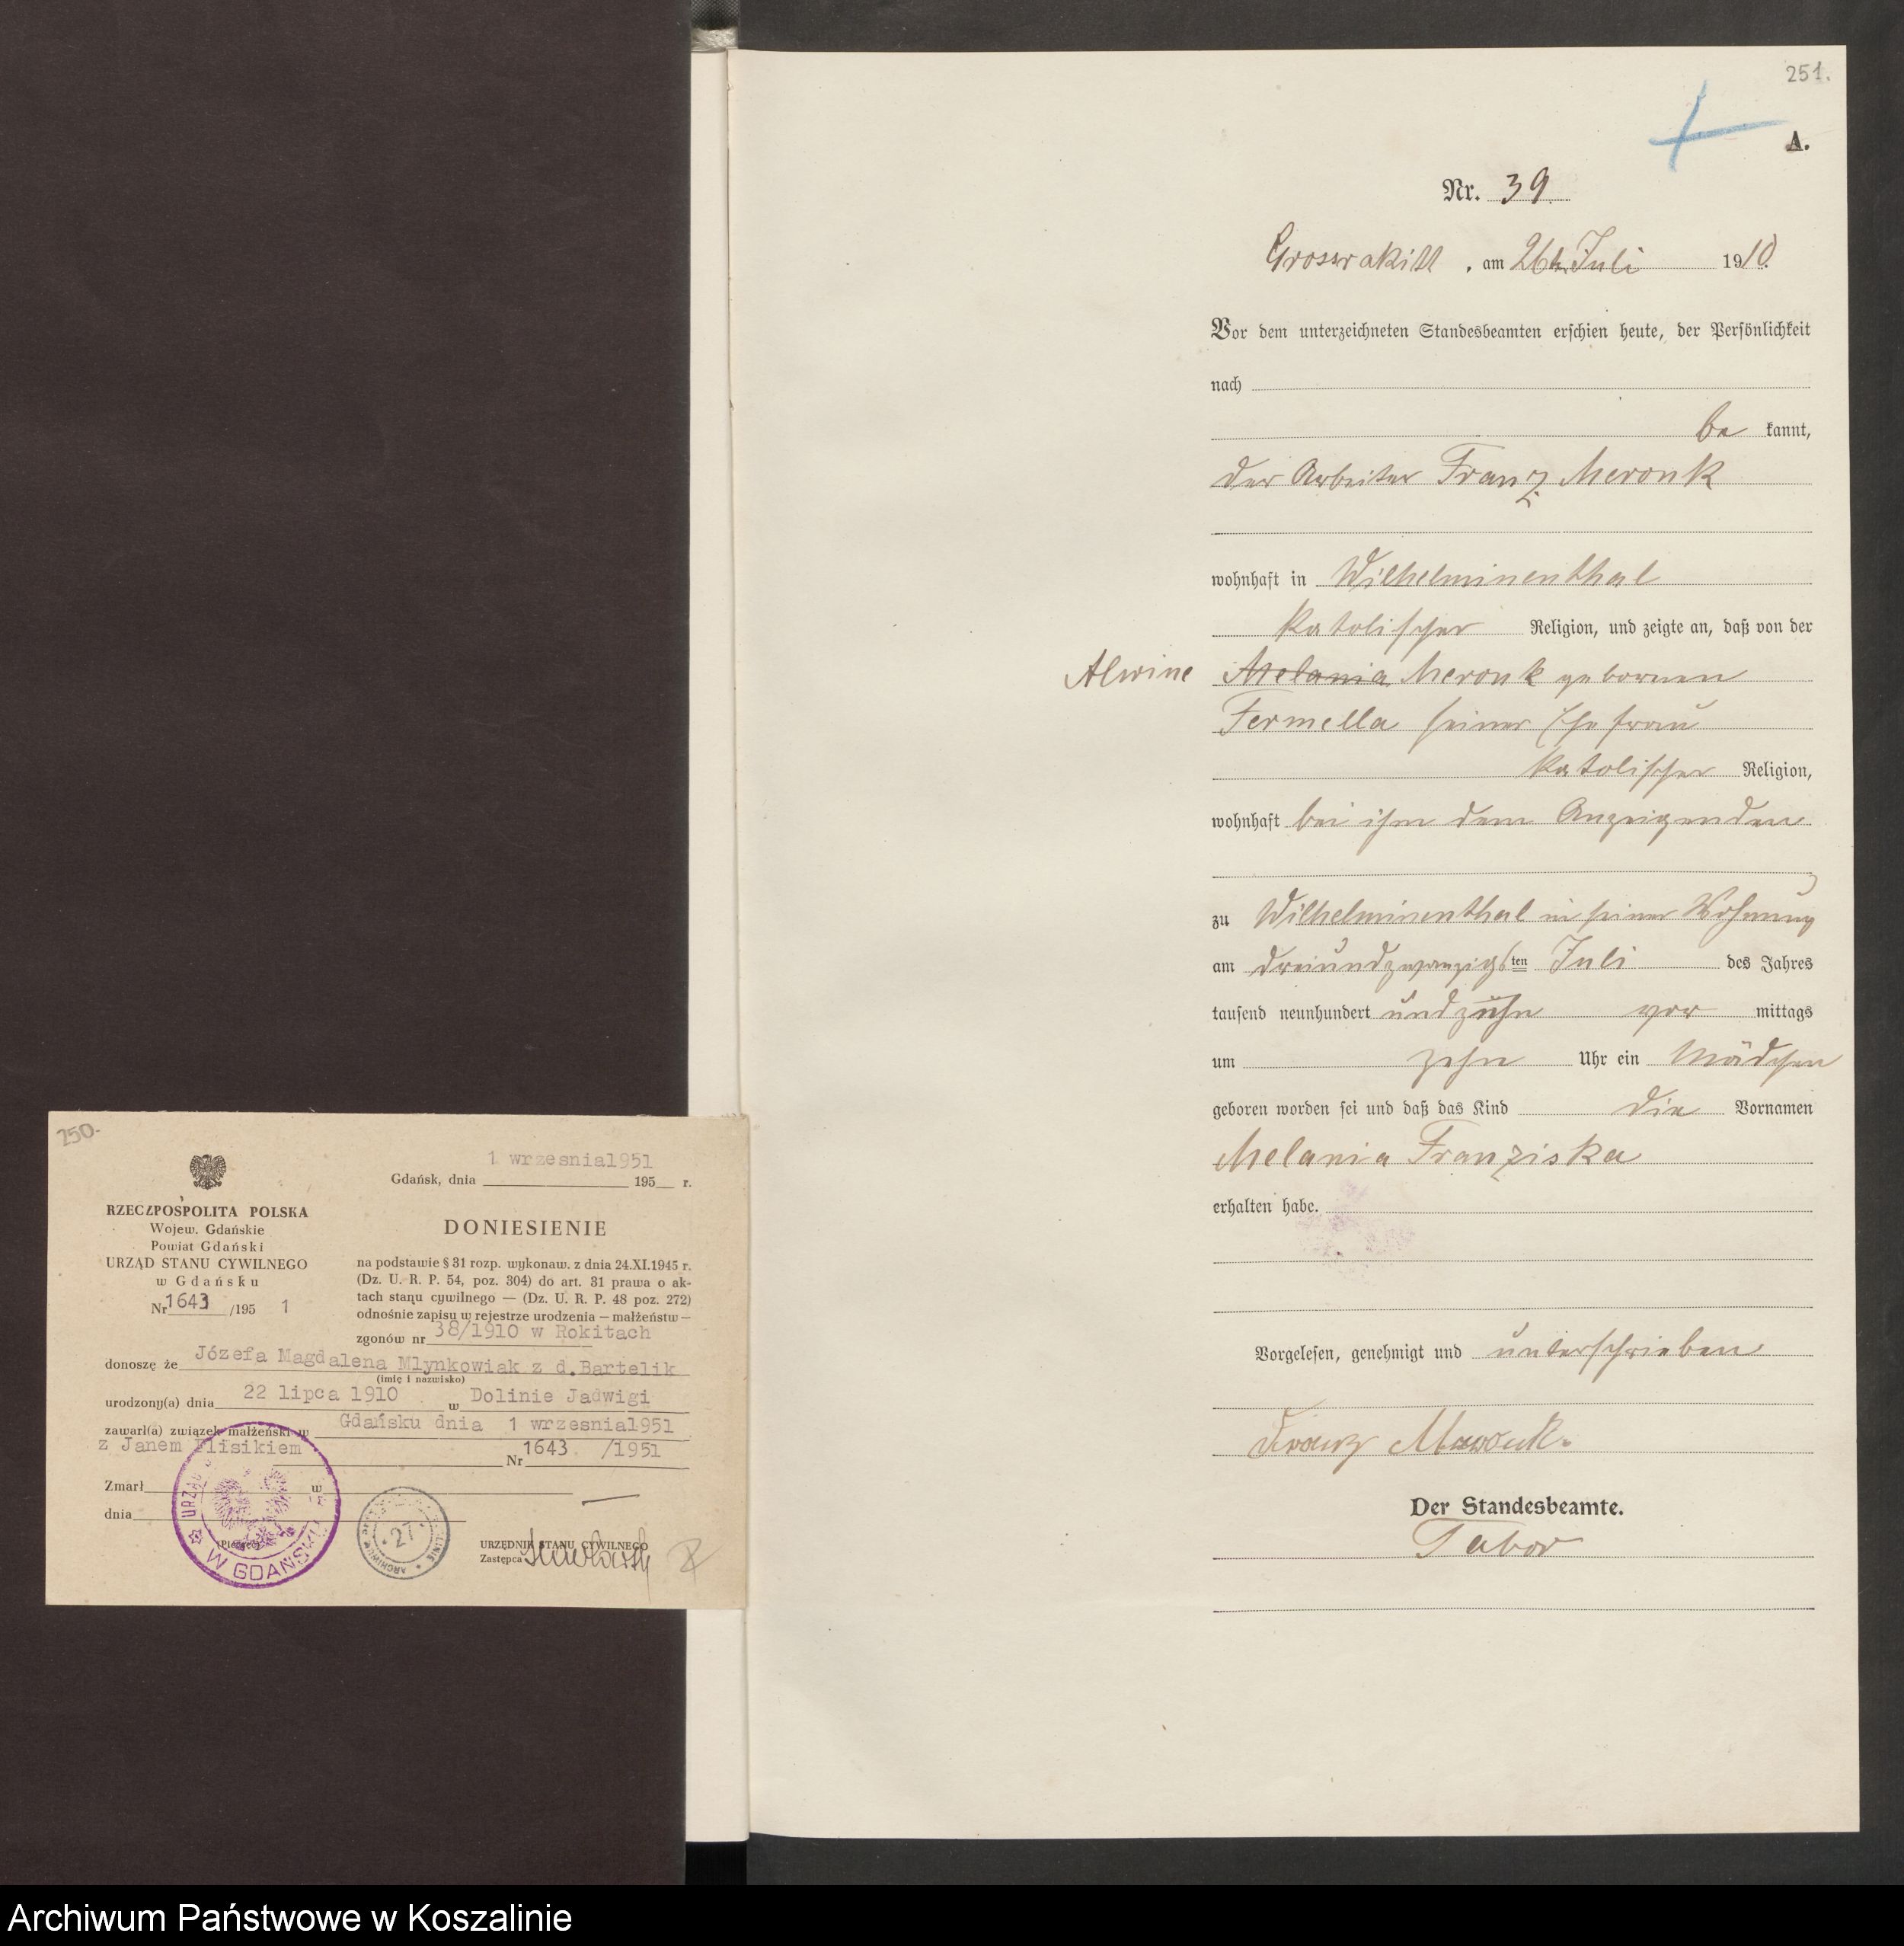 251.
A.
Nr. 39
Grossrakitt, am 26ten Juli 1910.
Vor dem unterzeichneten Standesbeamten erschien heute, der Persönlichkeit
nach
be kannt,
der Arbeiter Franz Meronk
wohnhaft in Wilhelminenthal
katolischer Religion, und zeigte an, daß von der
Alwine Melania Meronk gebornen
Formella seiner Ehefrau
katolischer Religion,
wohnhaft bei ihm dem Anzeigenden
zu Wilhelminenthal in seiner Wohnung
am dreiundzwanzigsten Juli des Jahres
tausend neunhundert und zehn vor mittags
um zehn Uhr ein Mädchen
geboren worden sei und daß das Kind die Vornamen
Melania Franziska
erhalten habe.
Vorgelesen, genehmigt und unterschrieben
Franz Meronk.
Der Standesbeamte.
Tabor
250.
1 wrzesnia1951
Gdańsk, dnia 195 r.
RZECZPOSPOLITA POLSKA
Wojew. Gdańskie
Powiat Gdański
URZĄD STANU CYWILNEGO
w Gdańsku
Nr 1643 /195 1
DONIESIENIE
na podstawie § 31 rozp. wykonaw. z dnia 24.XI.1945 r.
(Dz. U. R. P. 54, poz. 304) do art. 31 prawa o ak-
tach stanu cywilnego — (Dz. U. R. P. 48 poz. 272)
odnośnie zapisu w rejestrze urodzenia — małżeństw —
zgonów nr 38/1910 w Rokitach
donoszę że Józefa Magdalena Mlynkowiak z d.Bartelik
(imię i nazwisko)
urodzony(a) dnia 22 lipca 1910 w Dolinie Jadwigi
zawarł(a) związek małżeński w Gdańsku dnia 1 wrzesnia1951
z Janem Flisikiem Nr 1643 /1951
Zmarł w
dnia
(Pieczęć)
W GDAŃSKU
27
URZĘDNIK STANU CYWILNEGO
Zastępca
Archiwum Państwowe w Koszalinie